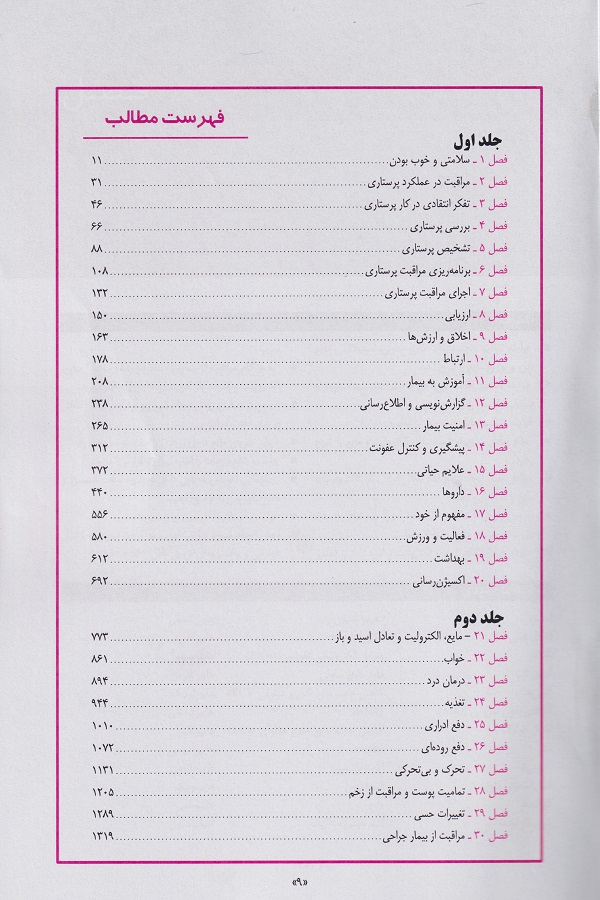 فهرست مطالب
جلد اول
فصل ۱ ـ سلامتی و خوب بودن ۱۱
فصل ۲ ـ مراقبت در عملکرد پرستاری ۳۱
فصل ۳ ـ تفکر انتقادی در کار پرستاری ۴۶
فصل ۴ ـ بررسی پرستاری ۶۶
فصل ۵ ـ تشخیص پرستاری ۸۸
فصل ۶ ـ برنامه‌ریزی مراقبت پرستاری ۱۰۸
فصل ۷ ـ اجرای مراقبت پرستاری ۱۳۲
فصل ۸ ـ ارزیابی ۱۵۰
فصل ۹ ـ اخلاق و ارزش‌ها ۱۶۳
فصل ۱۰ ـ ارتباط ۱۷۸
فصل ۱۱ ـ آموزش به بیمار ۲۰۸
فصل ۱۲ ـ گزارش‌نویسی و اطلاع‌رسانی ۲۳۸
فصل ۱۳ ـ امنیت بیمار ۲۶۵
فصل ۱۴ ـ پیشگیری و کنترل عفونت ۳۱۲
فصل ۱۵ ـ علایم حیاتی ۳۷۲
فصل ۱۶ ـ داروها ۴۴۰
فصل ۱۷ ـ مفهوم از خود ۵۵۶
فصل ۱۸ ـ فعالیت و ورزش ۵۸۰
فصل ۱۹ ـ بهداشت ۶۱۲
فصل ۲۰ ـ اکسیژن‌رسانی ۶۹۲
جلد دوم
فصل ۲۱ – مایع، الکترولیت و تعادل اسید و باز ۷۷۳
فصل ۲۲ ـ خواب ۸۶۱
فصل ۲۳ ـ درمان درد ۸۹۴
فصل ۲۴ ـ تغذیه ۹۴۴
فصل ۲۵ ـ دفع ادراری ۱۰۱۰
فصل ۲۶ ـ دفع روده‌ای ۱۰۷۲
فصل ۲۷ ـ تحرک و بی‌تحرکی ۱۱۳۱
فصل ۲۸ ـ تمامیت پوست و مراقبت از زخم ۱۲۰۵
فصل ۲۹ ـ تغییرات حسی ۱۲۸۹
فصل ۳۰ ـ مراقبت از بیمار جراحی ۱۳۱۹
«۹»